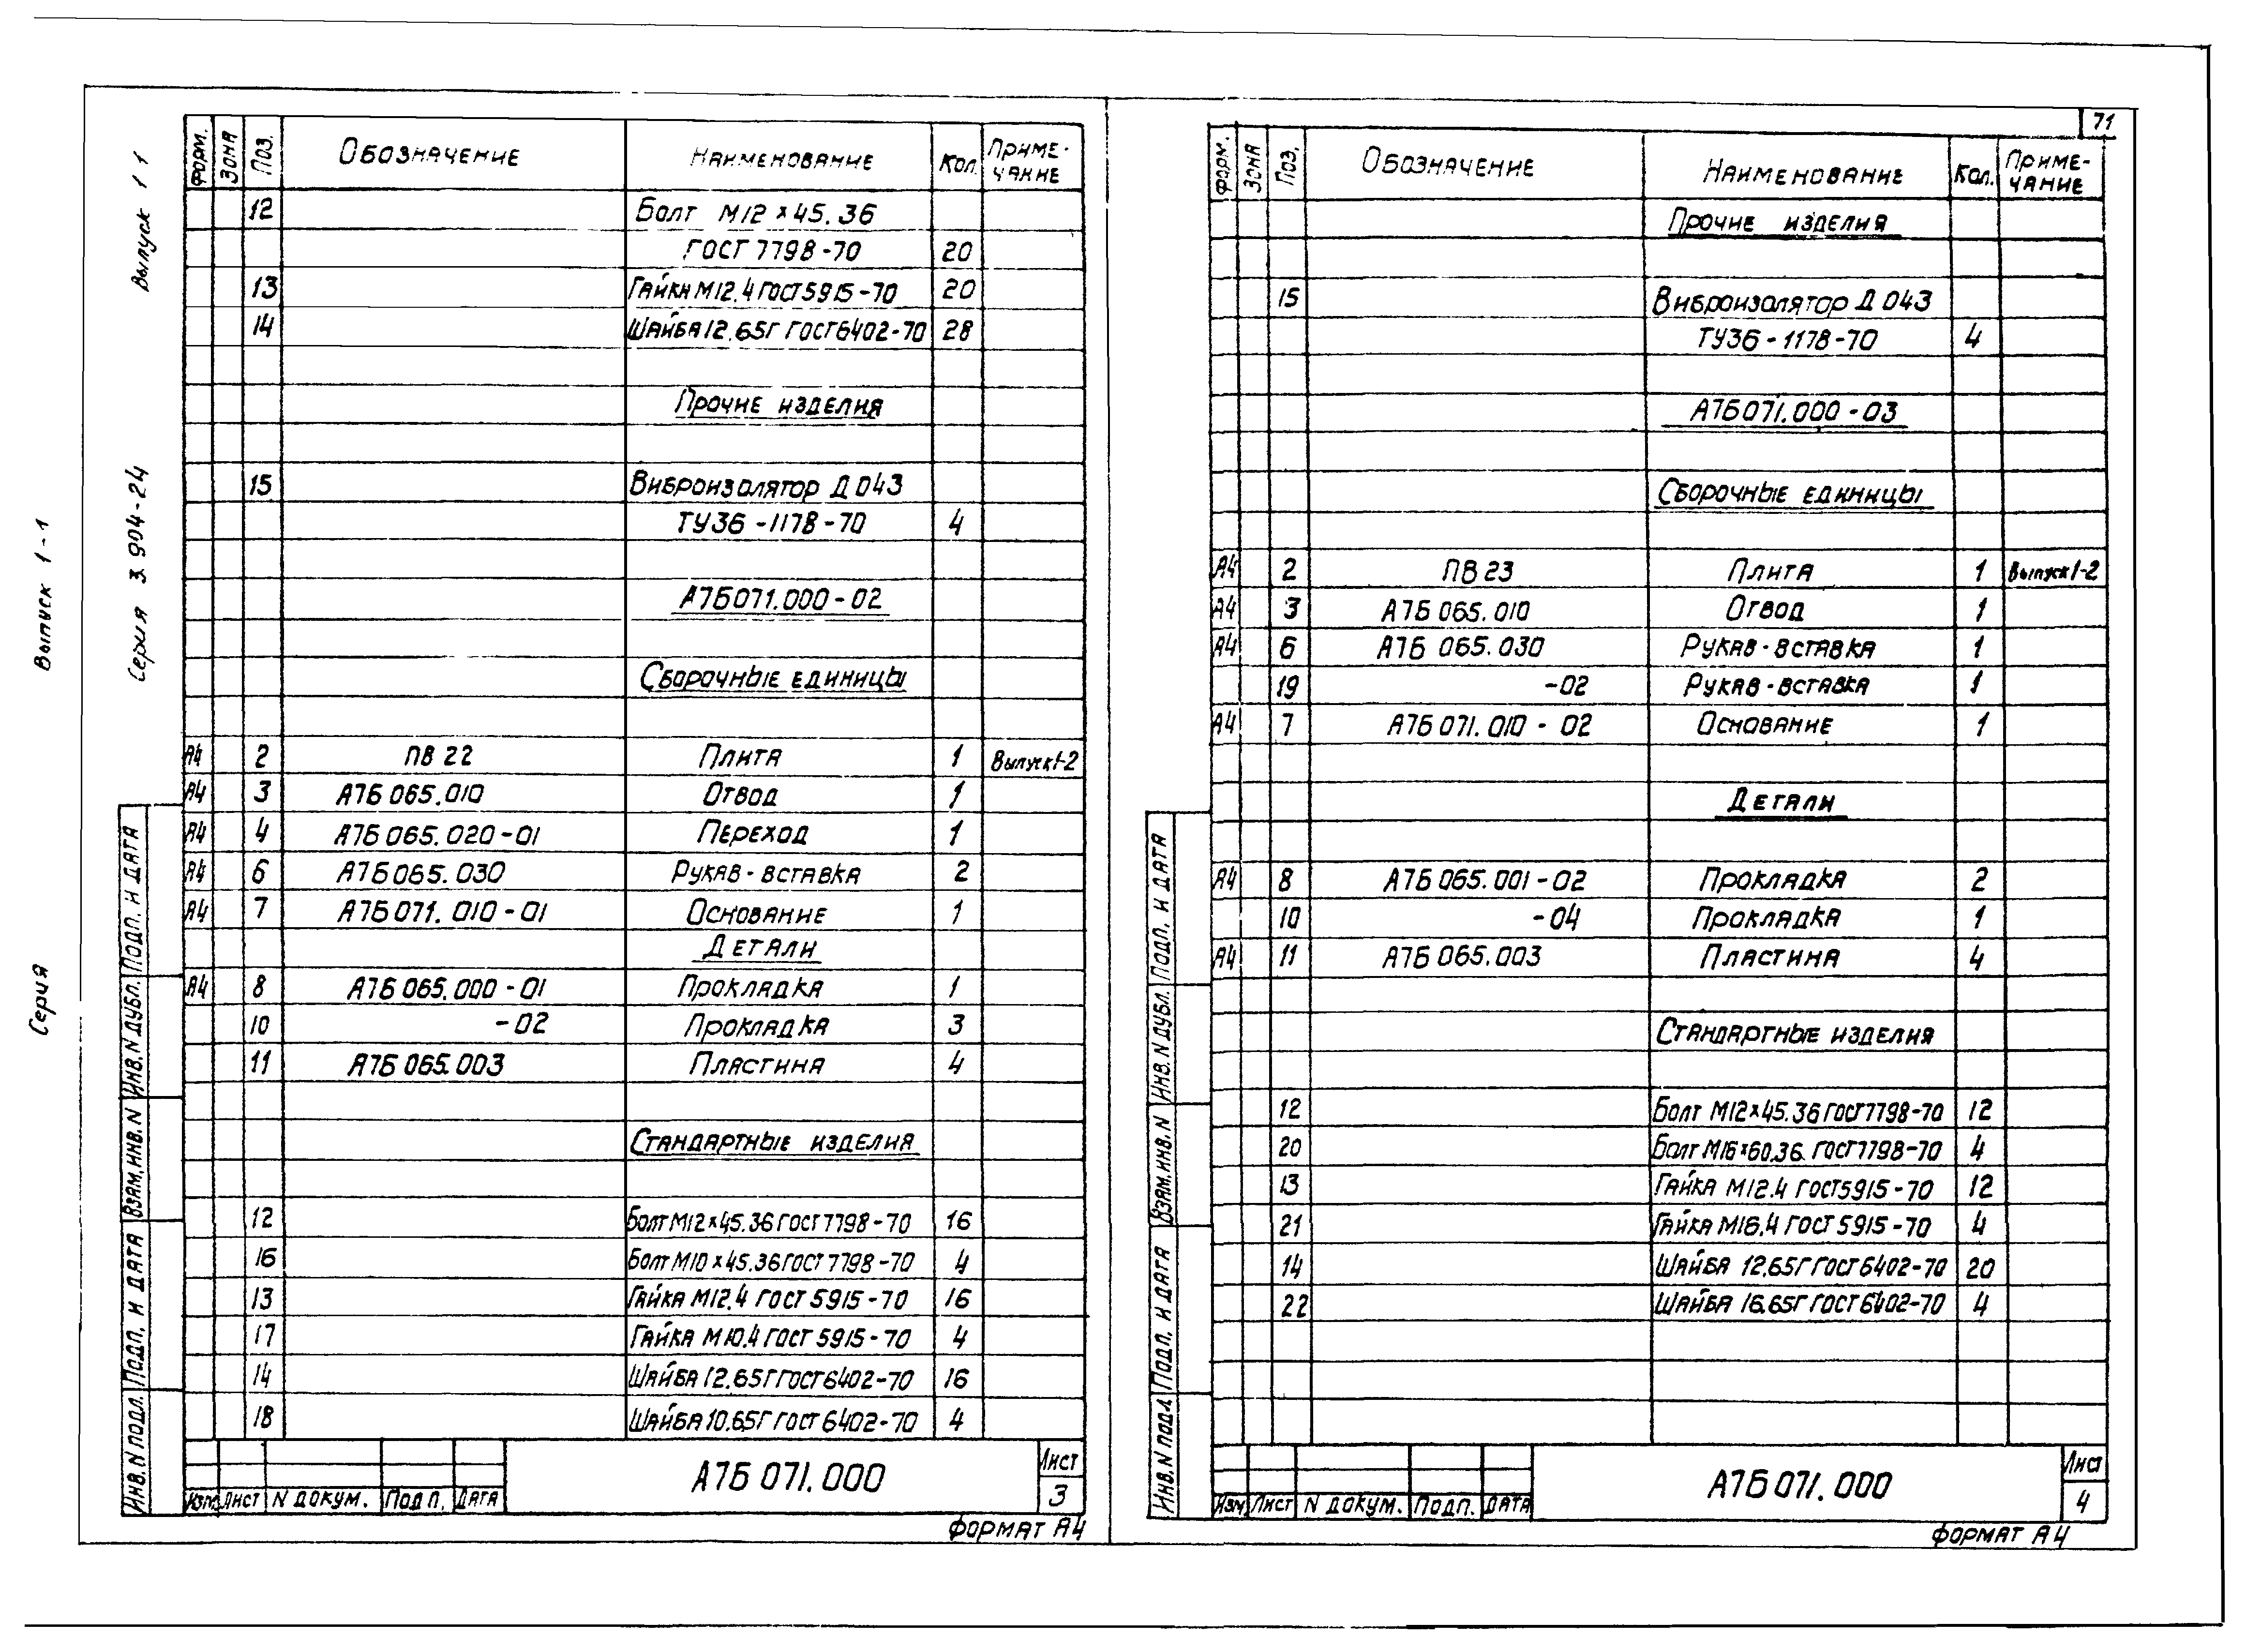 Серия Выпуск 1-1
Серия 3.904-24 Выпуск 1 1
Форм. Зона Поз. Обозначение Наименование Кол. Приме-
чание
12 Болт М12×45.36
ГОСТ 7798-70 20
13 Гайка М12.4 ГОСТ 5915-70 20
14 Шайба 12.65Г ГОСТ 6402-70 28
Прочие изделия
15 Виброизолятор Д 043
ТУ36-1178-70 4
А7Б071.000-02
Сборочные единицы
А4 2 ПВ 22 Плита 1 Выпуск 1-2
А4 3 А7Б 065.010 Отвод 1
А4 4 А7Б 065.020-01 Переход 1
А4 6 А7Б 065.030 Рукав-вставка 2
А4 7 А7Б 071.010-01 Основание 1
Детали
А4 8 А7Б 065.000-01 Прокладка 1
10 -02 Прокладка 3
11 А7Б 065.003 Пластина 4
Стандартные изделия
12 Болт М12×45.36 ГОСТ 7798-70 16
16 Болт М10×45.36 ГОСТ 7798-70 4
13 Гайка М12.4 ГОСТ 5915-70 16
17 Гайка М10.4 ГОСТ 5915-70 4
14 Шайба 12.65Г ГОСТ 6402-70 16
18 Шайба 10.65Г ГОСТ 6402-70 4
Инв. N подл. Подп. и дата Взам. инв. N Инв. N дубл. Подп. и дата
Изм Лист N докум. Подп. Дата
А7Б 071.000
Лист
3
Формат А4
71
Форм. Зона Поз. Обозначение Наименование Кол. Приме-
чание
Прочие изделия
15 Виброизолятор Д 043
ТУ36-1178-70 4
А7Б071.000-03
Сборочные единицы
А4 2 ПВ 23 Плита 1 Выпуск 1-2
А4 3 А7Б 065.010 Отвод 1
А4 6 А7Б 065.030 Рукав-вставка 1
19 -02 Рукав-вставка 1
А4 7 А7Б 071.010-02 Основание 1
Детали
А4 8 А7Б 065.001-02 Прокладка 2
10 -04 Прокладка 1
А4 11 А7Б 065.003 Пластина 4
Стандартные изделия
12 Болт М12×45.36 ГОСТ 7798-70 12
20 Болт М16×60.36. ГОСТ 7798-70 4
13 Гайка М12.4 ГОСТ 5915-70 12
21 Гайка М16.4 ГОСТ 5915-70 4
14 Шайба 12.65Г ГОСТ 6402-70 20
22 Шайба 16.65Г ГОСТ 6402-70 4
Инв. N подл. Подп. и дата Взам. инв. N Инв. N дубл. Подп. и дата
Изм Лист N докум. Подп. Дата
А7Б 071.000
Лист
4
Формат А4